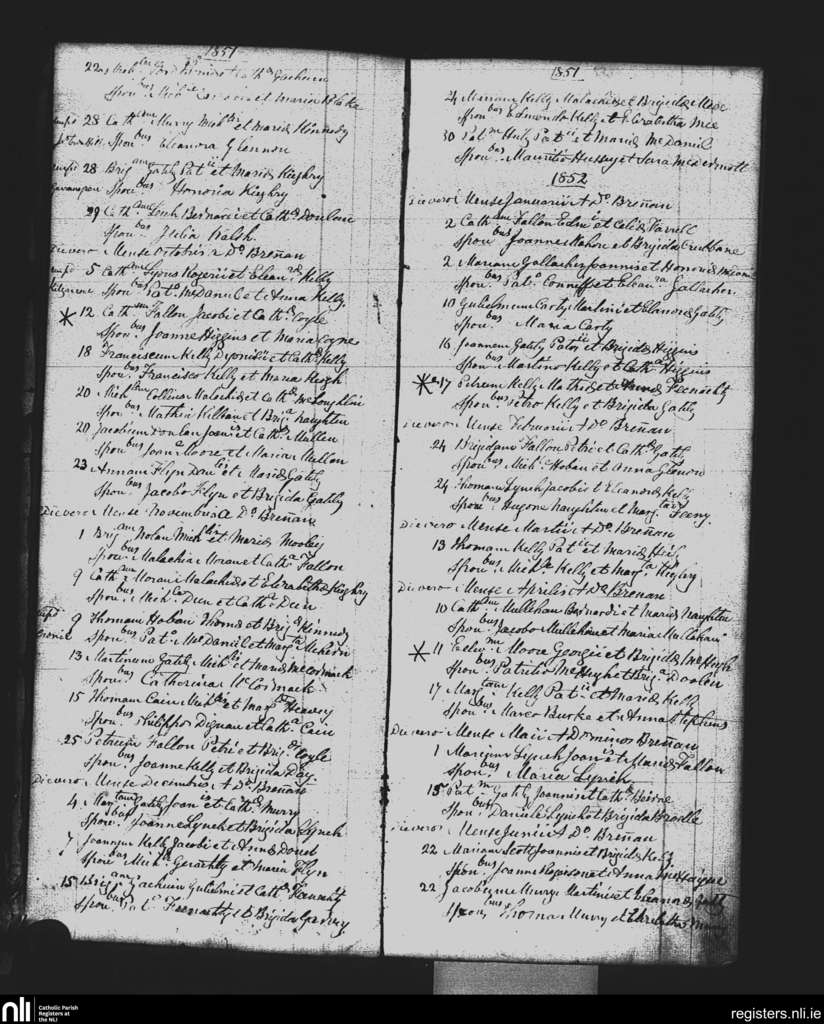 1851
Spon: bus Mich et Maria Blake
28 Cath am Murry Mich lis et Mariæ Kinnedy
Spon: bus Eleanora Glennon
28 Brig am Gately Pat ii et Mariæ Kighry
Spon: bus Honoria Kighry
29 Cath am Bernardi et Cath æ Donlan
Spon: bus Walsh
Die vero Mense Octobris A Do Breñan
5 Cath am Lyons Rogerii et Elean ræ Kelly
Spon: bus Pat o McDaniel et Anna Kelly
* 12 Cath am Fallon Jacobi et Cath æ Coyle
Spon: bus Joanne Higgins et Maria Coyne
18 Franciscum Kelly Dyonisii et Cath æ Kelly
Spon: bus Francisco Kelly et Maria Keogh
20 Mich lem Collins Malachiæ et Cath æ McLoughlin
Spon: bus Mathia Killian et Brig a Naughten
20 Jacobum Donlan Joan is et Cath æ Mullen
Spon: bus Joan e Moore et Maria Mullon
23 Annam Flyn Dan lis et Mariæ Gately
Spon: bus Jacobo Flyn et Brigida Gately
Die vero Mense Novembris A Do Breñan
1 Brig am Nolan Mich lis et Mariæ Mooley
Spon: bus Malachia Moran et Cath a Fallon
9 Cath am Moran Malachiæ et Elizabethæ Kighry
Spon: bus Mich le Deen et Cath a Deen
9 Thomam Hoban Thomæ et Brig æ Kinnedy
Spon: bus Pat o McDaniel et Marg ta
13 Martinum Gately Mich lis et Mariæ McCormack
Spon: bus Catherina McCormack
15 Thomam Cain Mich lis et Marg tæ Heavey
Spon: bus Philippo Dignan et Cath a Cain
25 Petrum Fallon Petri et Brig æ Coyle
Spon: bus Joanne Kelly et Brigida Day
Die vero Mense Decembris A Do Breñan
4 Marg tam Gately Joan is et Cath æ Murry
Spon: bus Joanne Lynch et Brigida Lynch
7 Joannem Kelly Jacobi et Annæ Dowd
Spon: bus Mich le Geraghty et Maria Flyn
15 Brig am Gachum Gulielmi et Cath æ Fannahty
Spon: bus Pat o Feenaghty et Brigida Garvey
1851
24 Mariam Kelly Malachiæ et Brigidæ Mee
Spon: bus Edmundo Kelly et Elizabetha Mee
30 Pat m Pat ii et Mariæ McDaniel
Spon: bus Mauritio Hussey et Sera McDermott
1852
Die vero Mense Januarii A Do Breñan
2 Cath am Fallon Edm i et Celiæ Farrell
Spon: bus Joanne Mahon et Brigida
2 Mariam Gallagher Joannis et Honoriæ
Spon: bus Pat o Conniff et Elean ra Gallagher
10 Gulielmum Carty Martini et Elanoræ Gately
Spon: bus Maria Carty
16 Joannem Gately Pat ii et Brigidæ Higgins
Spon: bus Martino Kelly et Cath a Higgins
* 17 Petrum Kelly Mathiæ et Annæ Feenaghty
Spon: bus Petro Kelly et Brigida Gately
Die vero Mense Februarii A Do Breñan
24 Brigidam Fallon Petri et Cath æ Gately
Spon: bus Mich e Hoban et Anna Glenon
24 Thomam Lynch Jacobi et Eleanoræ Kelly
Spon: bus Hugone Naughten et Marg ta Feeny
Die vero Mense Martii A Do Breñan
13 Thomam Kelly Pat ii et Mariæ
Spon: bus Mich le Kelly et Marg ta Kighry
Die vero Mense Aprilis A Do Breñan
10 Cath am Mullehan Bernardi et Mariæ Naughten
Spon: bus Jacobo Mullehan et Maria Mullahan
* 11 Moore Georgii et Brigidæ McHugh
Spon: bus Patritio McHugh et Brig a Doolin
17 Marg tam Kelly Pat ii et Mariæ Kelly
Spon: bus Marco Burke et Anna Stephens
Die vero Mense Maii A Dominos Breñan
1 Mariam Lynch Joan is et Mariæ Fallon
Spon: bus Maria Lynch
15 Pat m Gately Joannis et Cath æ Beirne
Spon: bus Daniele Lynch et Brigida Brodle
Die vero Mense Junii A Do Breñan
22 Mariam Scott Joannis et Brigidæ Kelly
Spon: bus Joanne et Anna
22 Jacobum Murry Martini et Eleanoræ Scott
Spon: bus Thoma Murry et Elizabetha Murry
nli Catholic Parish Registers at the NLI
registers.nli.ie